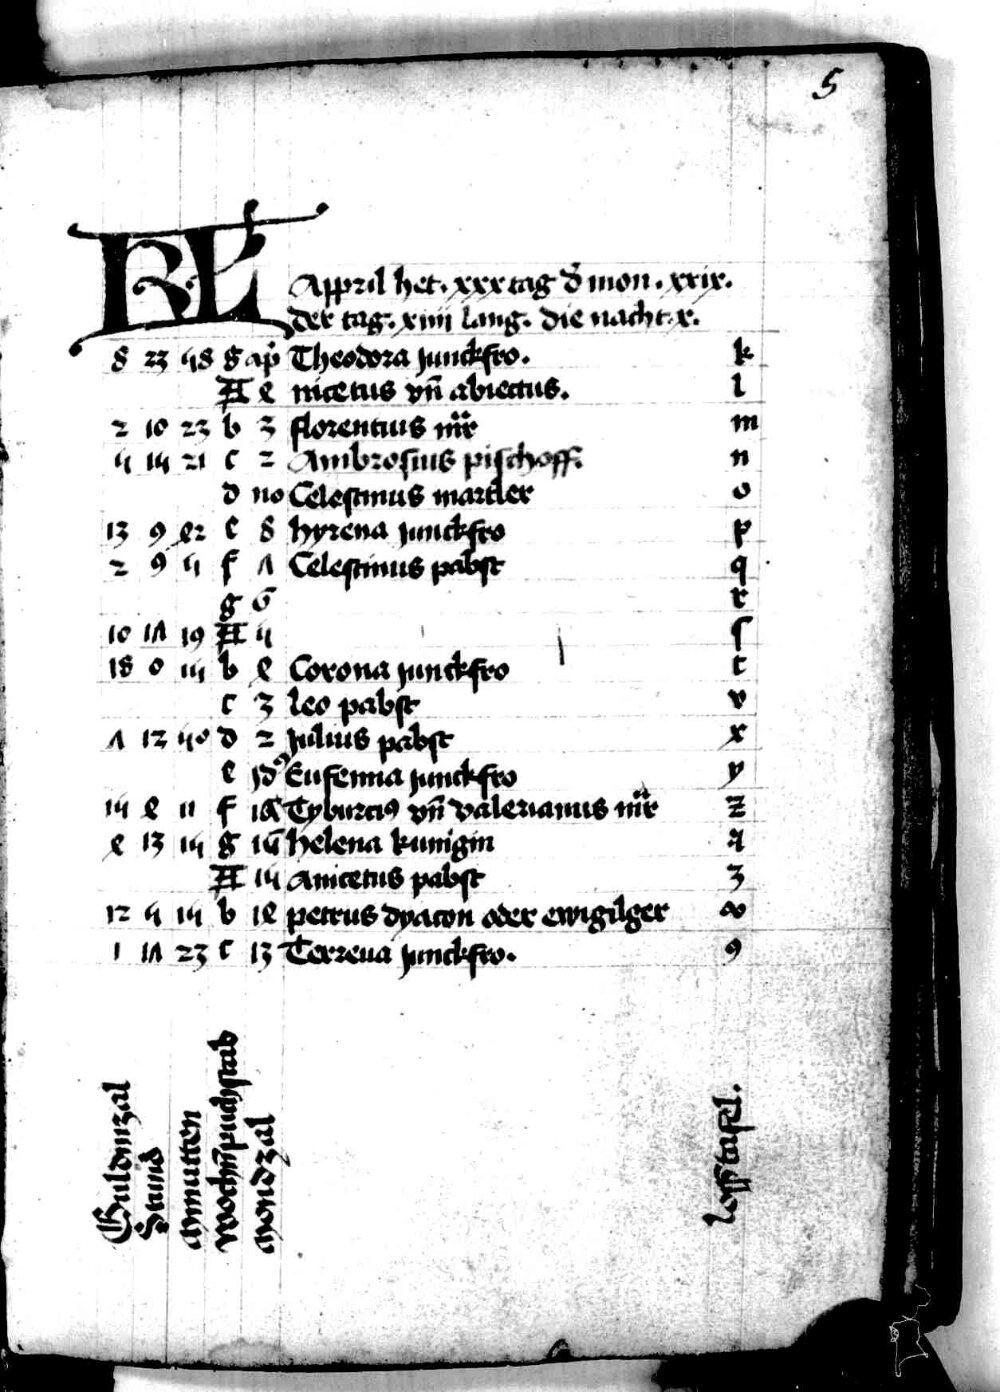 5
KL Appril het . xxx tag d̄ mon . xxix .
der tag . xiiii lang . die nacht . x .
8 23 48 g ap̄ Theodora junckfro . k
A e nicetus vn̄ abiectus . l
2 10 23 b 3 florentius mr̄ m
4 14 21 c 2 Ambrosius pischoff . n
d no Celestinus martler o
13 9 e2 e 8 hyrena junckfro p
2 9 4 f ʌ Celestinus pabst q
g 6 r
10 1ʌ 19 A 4 ſ
18 0 14 b e Corona junckfro t
c 3 leo pabst v
ʌ 12 40 d 2 Julius pabst x
e jdꝰ Eufemia junckfro y
14 e 11 f 18 Tyburciꝰ vn̄ valerianus mr̄ z
e 13 14 g 16 helena kunigin ꝛ
A 14 Anicetus pabst 3
12 4 14 b 1e petrus dyacon oder ewigilger
1 1ʌ 23 c 13 Terreua junckfro . 9
Guldinzal
Stund
Mynutten
wochn̄puchstab
Mondzal
loſstafel .